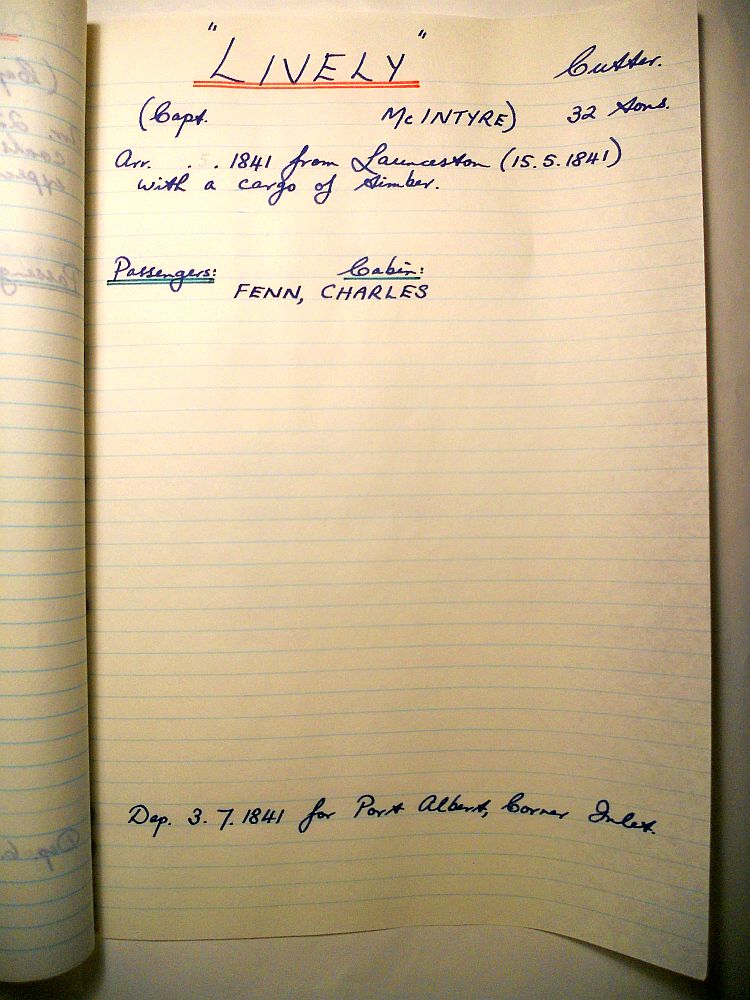 "LIVELY" Cutter.
(Capt. McINTYRE) 32 tons.
Arr. .5. 1841 from Launceston (15.5.1841)
with a cargo of timber.
Passengers: Cabin:
FENN, CHARLES
Dep. 3.7.1841 for Port Albert, Corner Inlet.